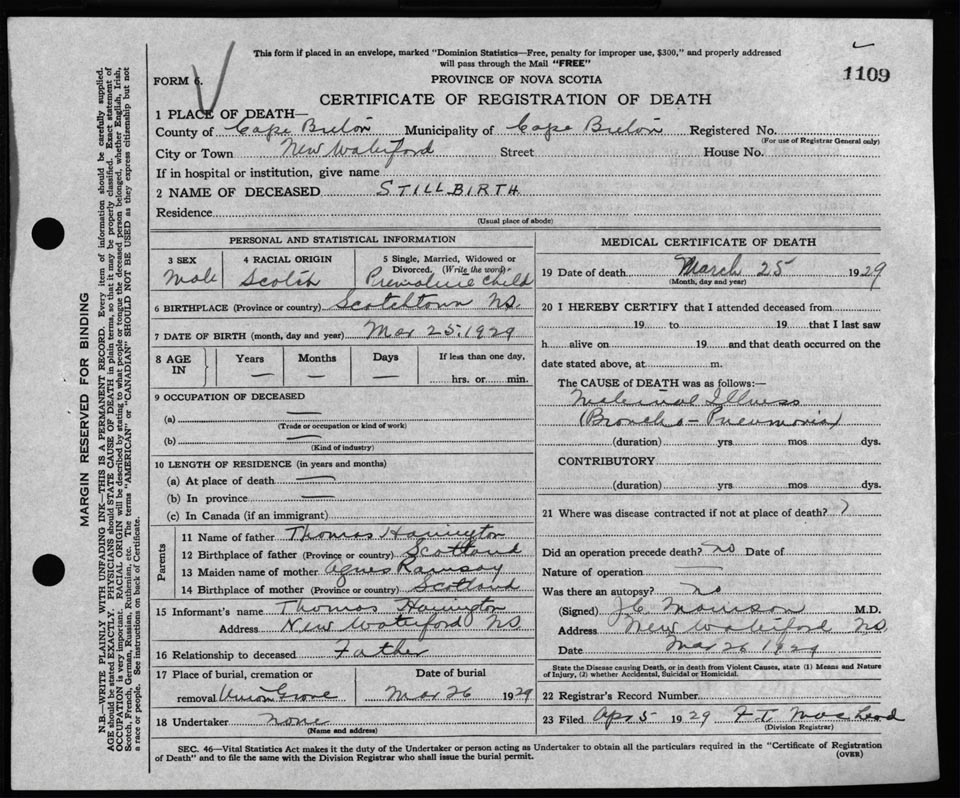 This form if placed in an envelope, marked "Dominion Statistics—Free, penalty for improper use, $300," and properly addressed
will pass through the Mail "FREE"
1109
FORM 6.
PROVINCE OF NOVA SCOTIA
CERTIFICATE OF REGISTRATION OF DEATH
1 PLACE OF DEATH—
County of Cape Breton Municipality of Cape Breton Registered No.
(For use of Registrar General only)
City or Town New Waterford Street House No.
If in hospital or institution, give name
2 NAME OF DECEASED STILLBIRTH
Residence
(Usual place of abode)
PERSONAL AND STATISTICAL INFORMATION
3 SEX 4 RACIAL ORIGIN 5 Single, Married, Widowed or
Divorced. (Write the word)
Male Scotch Premature child
6 BIRTHPLACE (Province or country) Scotchtown N.S.
7 DATE OF BIRTH (month, day and year) Mar 25. 1929
8 AGE IN Years Months Days If less than one day,
— — — hrs. or min.
9 OCCUPATION OF DECEASED
(a) —
(Trade or occupation or kind of work)
(b) —
(Kind of industry)
10 LENGTH OF RESIDENCE (in years and months)
(a) At place of death —
(b) In province —
(c) In Canada (if an immigrant)
Parents
11 Name of father Thomas Harrington
12 Birthplace of father (Province or country) Scotland
13 Maiden name of mother Agnes Ramsay
14 Birthplace of mother (Province or country) Scotland
15 Informant's name Thomas Harrington
Address New Waterford N.S.
16 Relationship to deceased Father
17 Place of burial, cremation or Date of burial
removal Union Grove Mar 26 1929
18 Undertaker none
(Name and address)
MEDICAL CERTIFICATE OF DEATH
19 Date of death March 25 1929
(Month, day and year)
20 I HEREBY CERTIFY that I attended deceased from
19 to 19 that I last saw
h alive on 19 and that death occurred on the
date stated above, at m.
The CAUSE OF DEATH was as follows:—
Maternal Illness
(Broncho-Pneumonia)
(duration) yrs mos dys.
CONTRIBUTORY
(duration) yrs mos dys.
21 Where was disease contracted if not at place of death? ?
Did an operation precede death? no Date of
Nature of operation —
Was there an autopsy? no
(Signed) J.C. Morrison M.D.
Address New Waterford N.S.
Date Mar 26 1929
State the Disease causing Death, or in death from Violent Causes, state (1) Means and Nature
of Injury, (2) whether Accidental, Suicidal or Homicidal.
22 Registrar's Record Number
23 Filed Apr 5 1929 F.T. MacLeod
(Division Registrar)
SEC. 46—Vital Statistics Act makes it the duty of the Undertaker or person acting as Undertaker to obtain all the particulars required in the "Certificate of Registration
of Death" and to file the same with the Division Registrar who shall issue the burial permit.
(OVER)
MARGIN RESERVED FOR BINDING
N.B.—WRITE PLAINLY WITH UNFADING INK—THIS IS A PERMANENT RECORD. Every item of information should be carefully supplied.
AGE should be stated EXACTLY. PHYSICIANS should STATE CAUSE OF DEATH in plain terms, so that it may be properly classified. Exact statement of
OCCUPATION is very important. RACIAL ORIGIN will be described by stating to what people or tongue the deceased person belonged, whether English, Irish,
Scotch, French, German, Russian, Ruthenian, etc. The terms "AMERICAN" or "CANADIAN" SHOULD NOT BE USED as they express citizenship but not
a race or people. See instructions on back of Certificate.